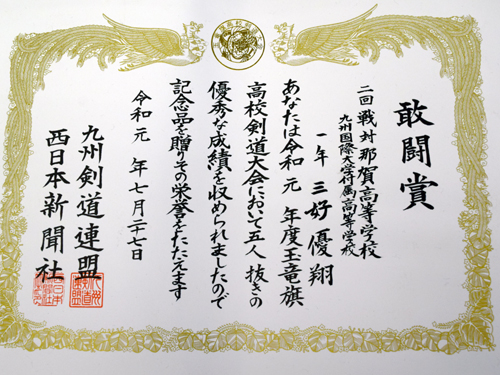 敢闘賞
二回戦対那賀高等学校
九州国際大学付属高等学校
一年 三好優翔
あなたは令和元年度玉竜旗
高校剣道大会において五人抜きの
優秀な成績を収められましたので
記念品を贈りその栄誉をたたえます
令和元年七月二十七日
九州剣道連盟
西日本新聞社